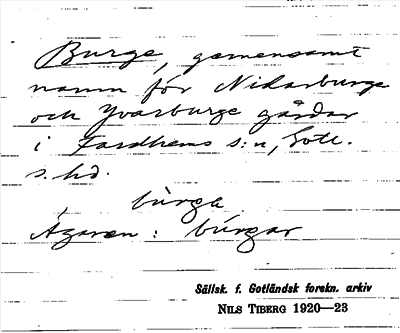 Burge, gemensamt
namn för Nickarburge
och Yvarsburge gårdar
i Fardhems s:n, Gotl.
s. hd.
bùrge
Ägaren: bùrgar
Sällsk. f. Gotländsk forskn. arkiv
NILS TIBERG 1920—23